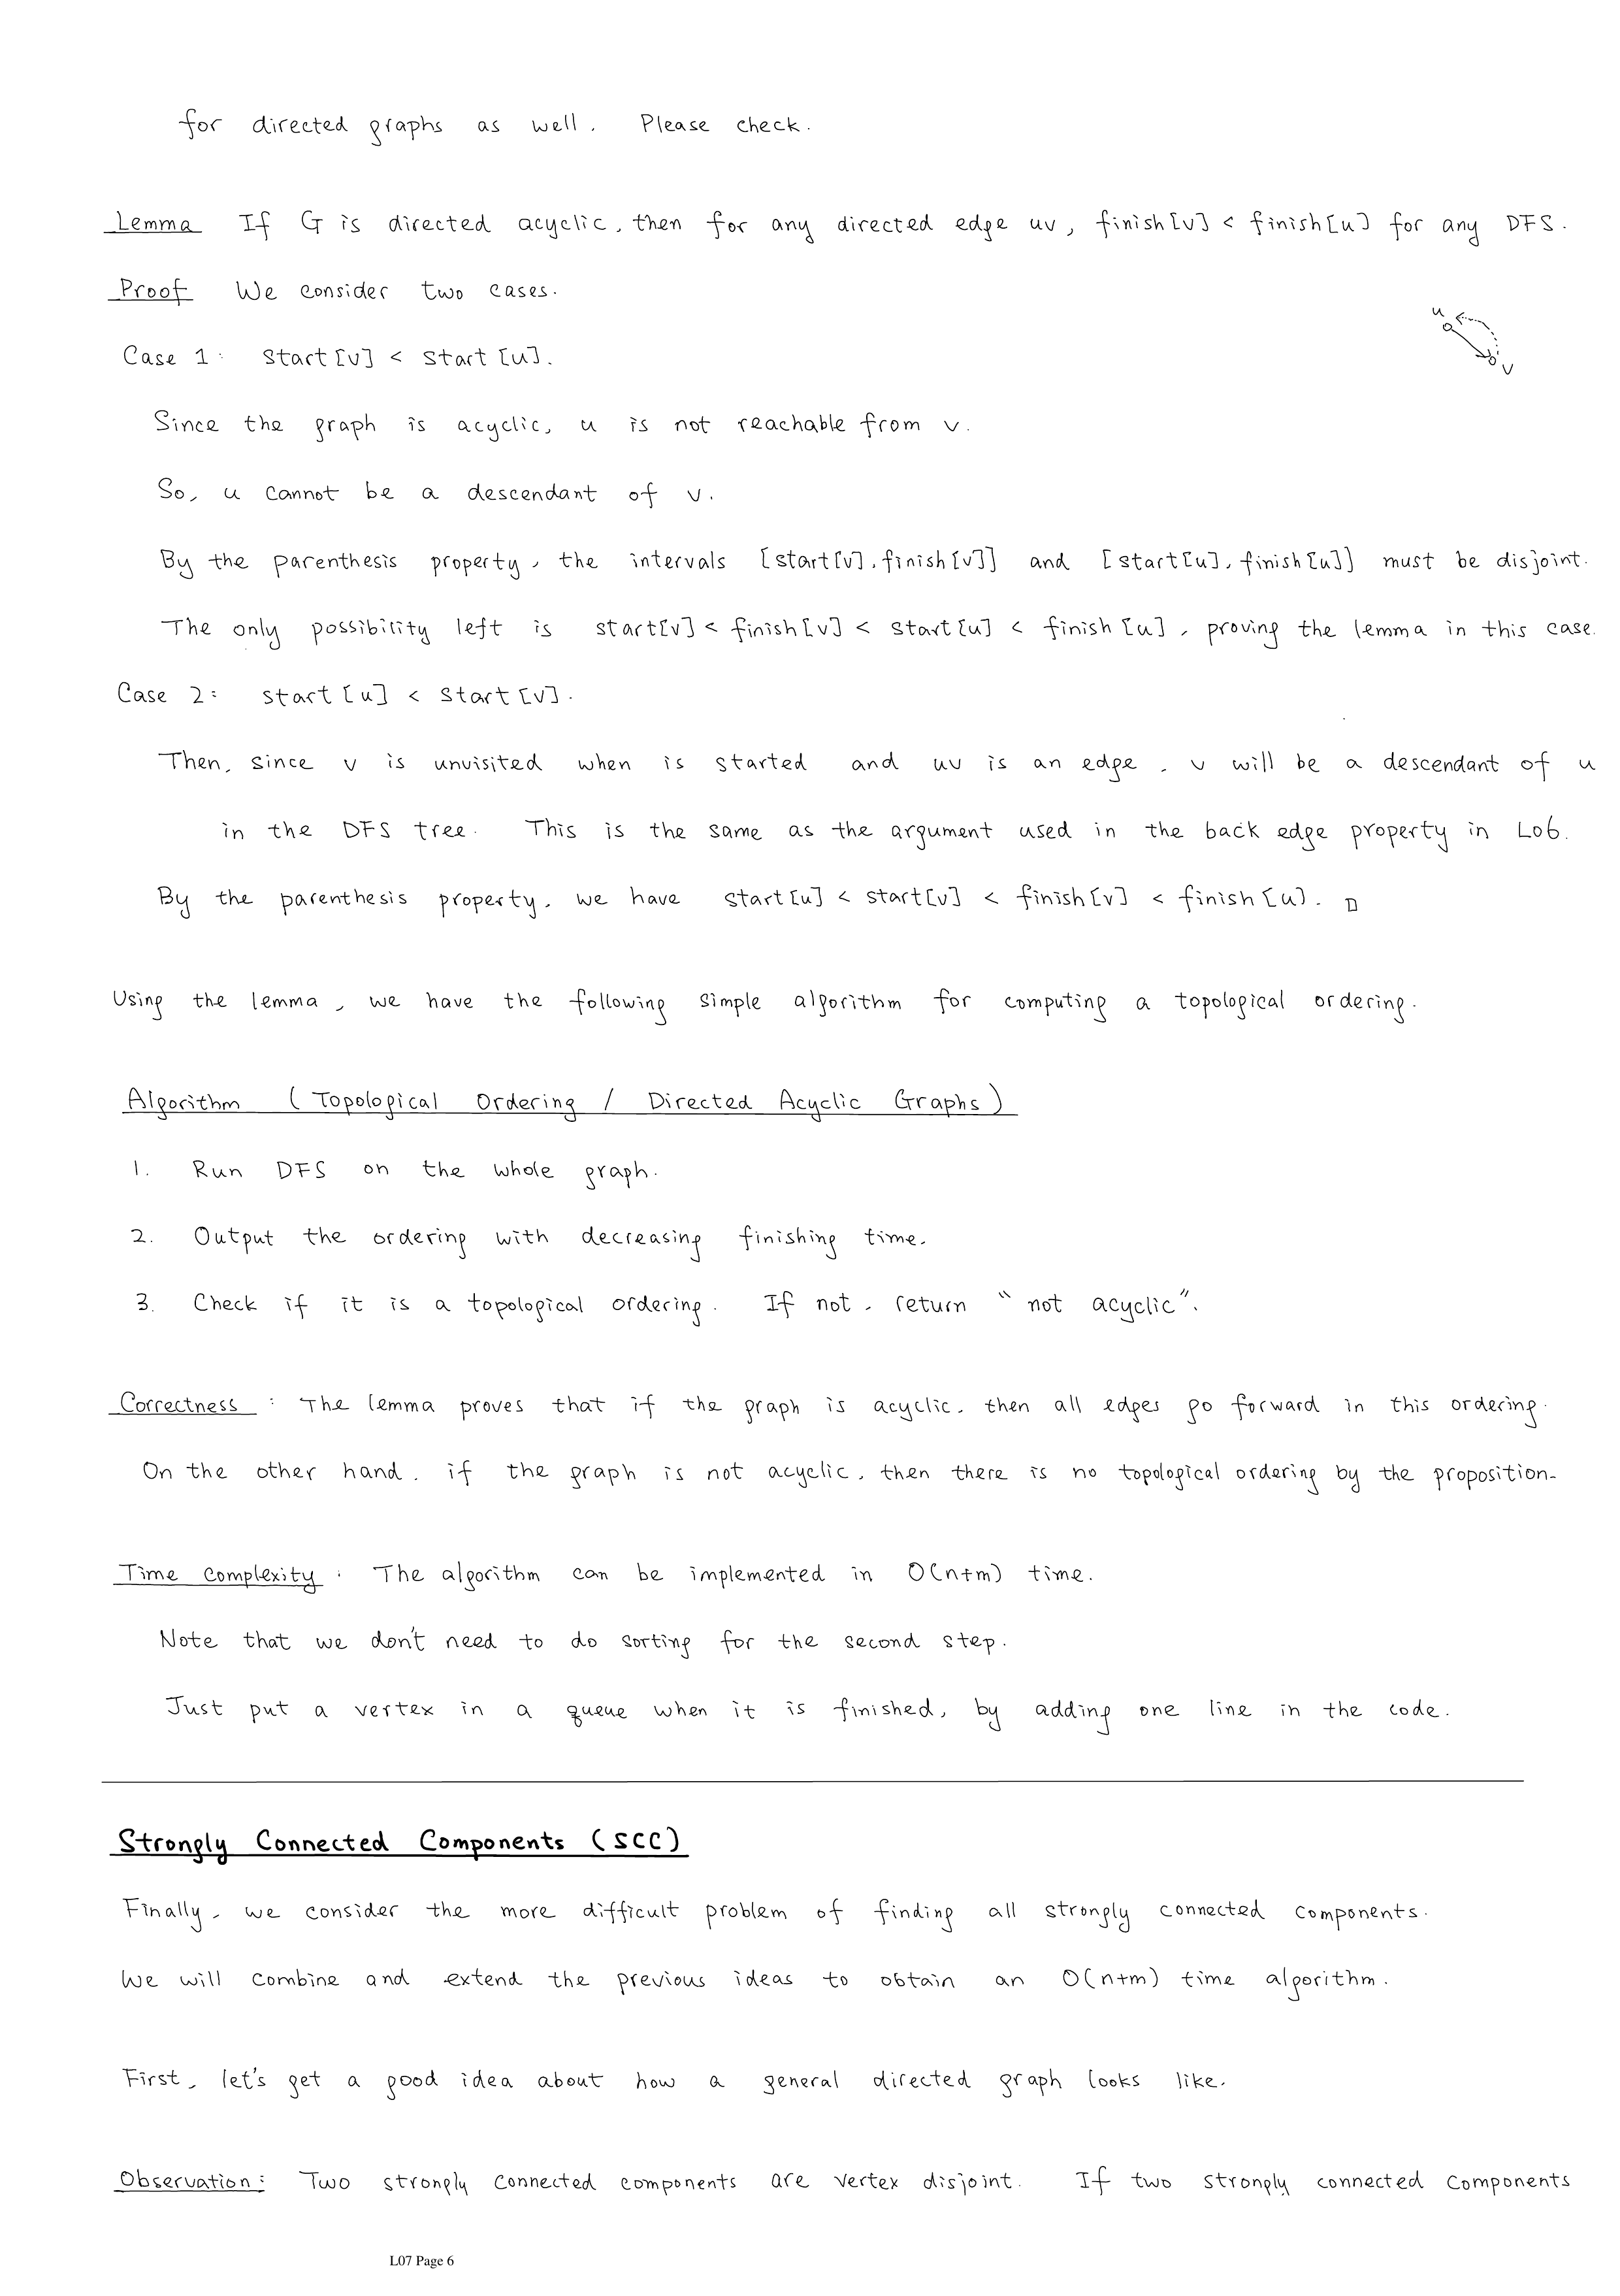 for directed graphs as well. Please check.
Lemma If G is directed acyclic, then for any directed edge uv, finish[v] < finish[u] for any DFS.
Proof We consider two cases.
u
v
Case 1: start[v] < start[u].
Since the graph is acyclic, u is not reachable from v.
So, u cannot be a descendant of v.
By the parenthesis property, the intervals [start[v], finish[v]] and [start[u], finish[u]] must be disjoint.
The only possibility left is start[v] < finish[v] < start[u] < finish[u], proving the lemma in this case.
Case 2: start[u] < start[v].
Then, since v is unvisited when is started and uv is an edge, v will be a descendant of u
in the DFS tree. This is the same as the argument used in the back edge property in L06.
By the parenthesis property, we have start[u] < start[v] < finish[v] < finish[u]. □
Using the lemma, we have the following simple algorithm for computing a topological ordering.
Algorithm (Topological Ordering / Directed Acyclic Graphs)
1. Run DFS on the whole graph.
2. Output the ordering with decreasing finishing time.
3. Check if it is a topological ordering. If not, return "not acyclic".
Correctness: The lemma proves that if the graph is acyclic, then all edges go forward in this ordering.
On the other hand, if the graph is not acyclic, then there is no topological ordering by the proposition.
Time complexity: The algorithm can be implemented in O(n+m) time.
Note that we don't need to do sorting for the second step.
Just put a vertex in a queue when it is finished, by adding one line in the code.
Strongly Connected Components (SCC)
Finally, we consider the more difficult problem of finding all strongly connected components.
We will combine and extend the previous ideas to obtain an O(n+m) time algorithm.
First, let's get a good idea about how a general directed graph looks like.
Observation: Two strongly connected components are vertex disjoint. If two strongly connected components
L07 Page 6